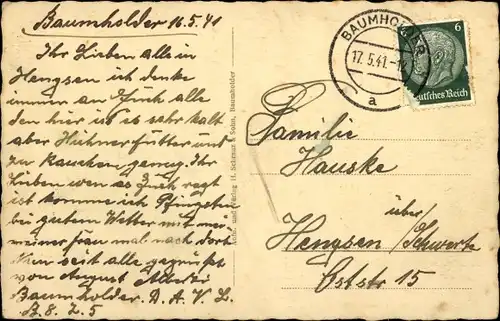 Baumholder 16.5.41
Ihr Lieben alle in
Hengsen ich denke
immer an Euch alle
den hier ist es sehr kalt
aber Hühnerfutter und
zu Rauchen genug. Ihr
Lieben wen es Euch
ist komme ich Pfingsten
bei gutem Wetter mit
meiner frau mal nach dort
Nun seit alle gegrüßt
von August
Baumholder. D. A. V. L.
B. 8. Z. 5
BAUMHOLDER
17.5.41.
a
6
Deutsches Reich
Familie
Hauske
über
Hengsen / Schwerte
Oststr 15